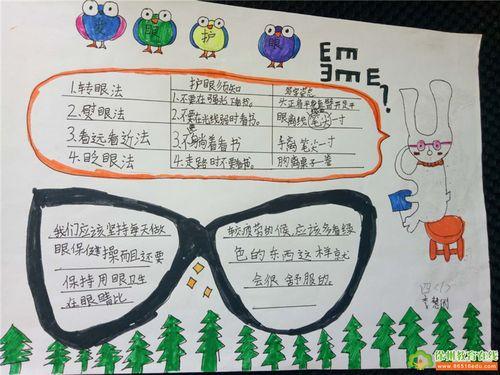 爱 眼 护 眼
E m
ヨ m E
1.转眼法
2.熨眼法
3.看远看近法
4.眨眼法
护眼须知
1.不要在强光下看书。
2.不要在光线弱时看书。
3.不躺着看书
4.走路时不要看书。
头正肩平身直臂开足平
眼离纸 一寸
手离笔尖一寸
胸离桌子一拳
我们应该坚持每天做
眼保健操而且还要
保持用眼卫生
在眼睛比
较疲劳的候,应该多看绿
色的东西这样就
会很舒服的。
四(1)
徐州教育在线
www.86516edu.com